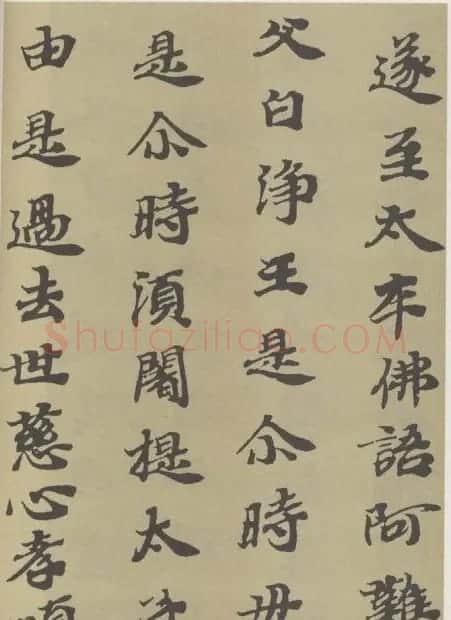 遂至太平佛語阿難
父白淨王是尒時母
是尒時須闍提太
由是過去世慈心孝順
Shufaziliao.COM